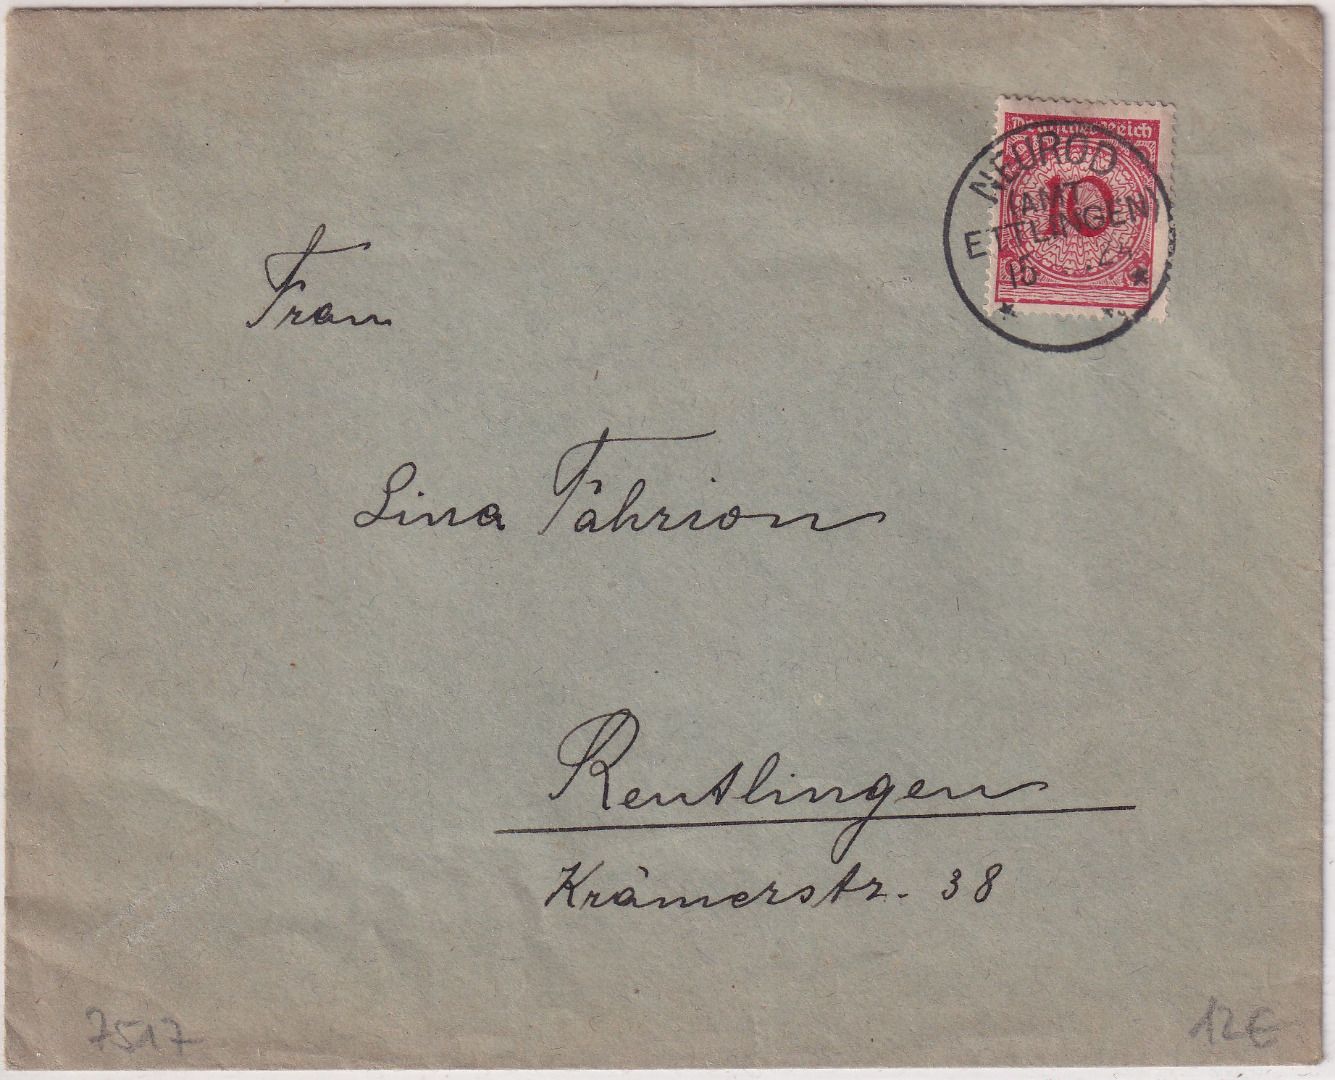 Deutsches Reich
10
NEUROD
(AMT
ETTLINGEN)
15 .24
Frau
Lina Fährion
Reutlingen
Krämerstr. 38
7517
12€